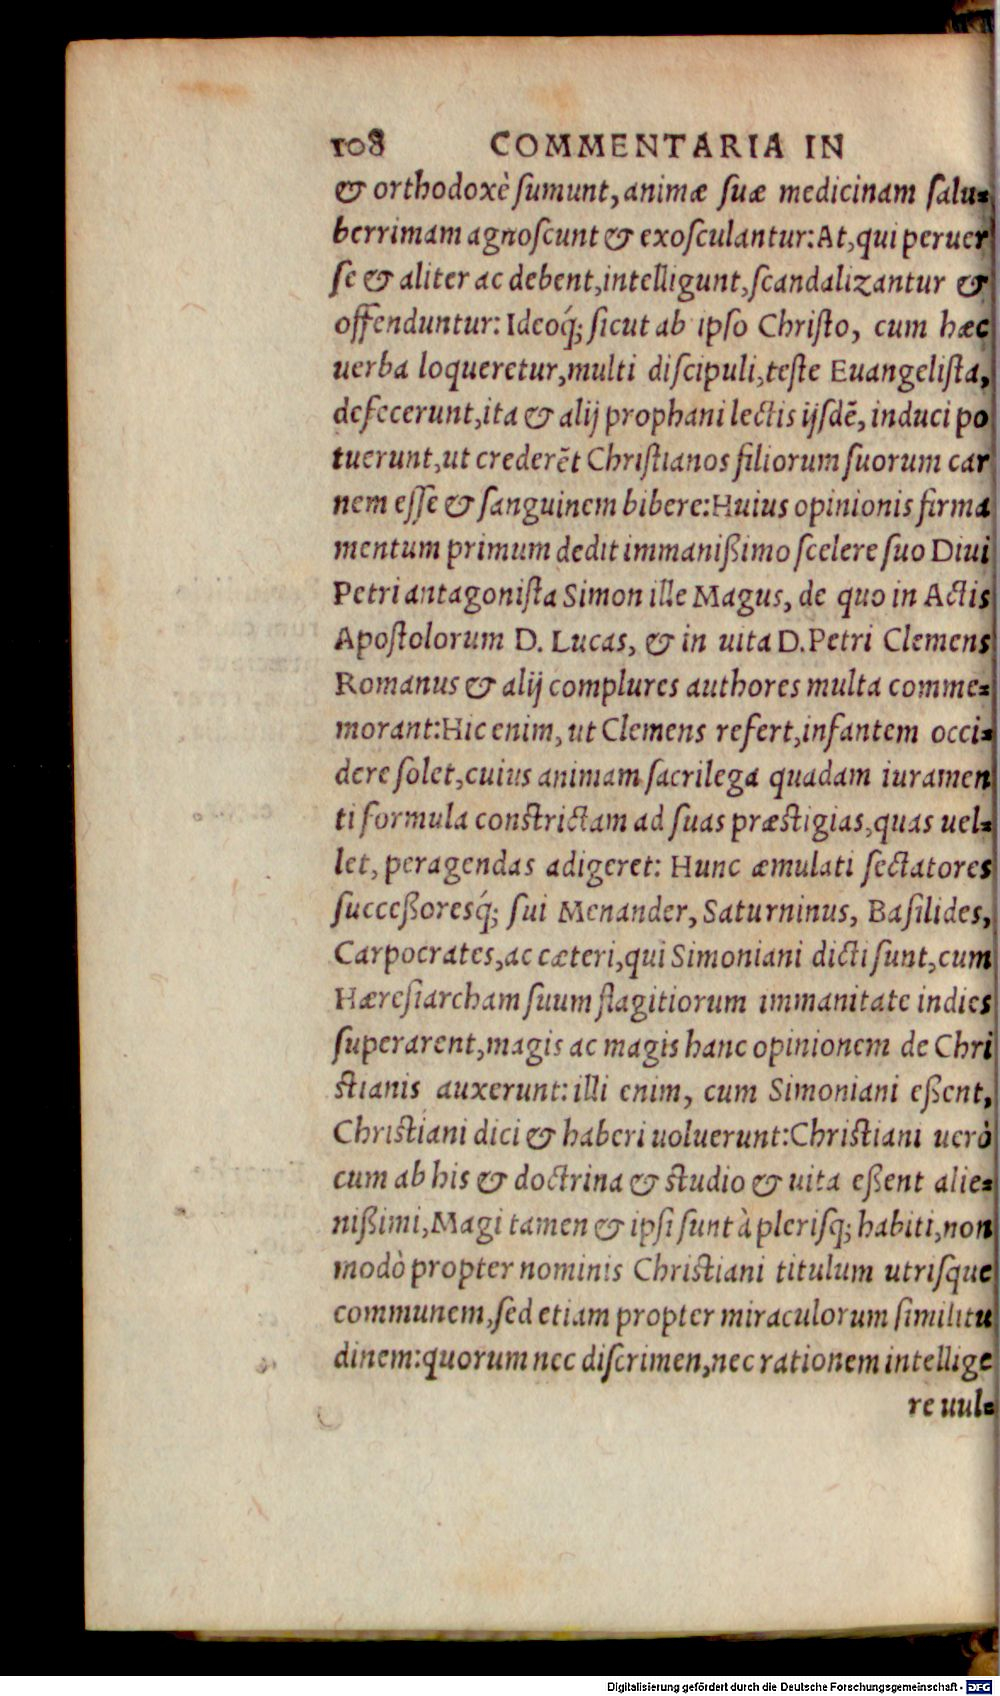 108 COMMENTARIA IN
& orthodoxè ſumunt, animæ ſuæ medicinam ſalu-
berrimam agnoſcunt & exoſculantur: At, qui peruer
ſe & aliter ac debent, intelligunt, ſcandalizantur &
offenduntur: Ideoq́; ſicut ab ipſo Chriſto, cum hæc
uerba loqueretur, multi diſcipuli, teſte Euangeliſta,
defecerunt, ita & alij prophani lectis ijſdē, induci po
tuerunt, ut crederēt Chriſtianos filiorum ſuorum car
nem eſſe & ſanguinem bibere: Huius opinionis firma
mentum primum dedit immanißimo ſcelere ſuo Diui
Petri antagoniſta Simon ille Magus, de quo in Actis
Apoſtolorum D. Lucas, & in uita D. Petri Clemens
Romanus & alij complures authores multa comme-
morant: Hic enim, ut Clemens refert, infantem occi-
dere ſolet, cuius animam ſacrilega quadam iuramen
ti formula conſtrictam ad ſuas præſtigias, quas uel-
let, peragendas adigeret: Hunc æmulati ſectatores
ſucceßoresq́; ſui Menander, Saturninus, Baſilides,
Carpocrates, ac cæteri, qui Simoniani dicti ſunt, cum
Hæreſiarcham ſuum flagitiorum immanitate indies
ſuperarent, magis ac magis hanc opinionem de Chri
ſtianis auxerunt: illi enim, cum Simoniani eßent,
Chriſtiani dici & haberi uoluerunt: Chriſtiani uerò
cum ab his & doctrina & ſtudio & uita eßent alie-
nißimi, Magi tamen & ipſi ſunt à pleriſq; habiti, non
modò propter nominis Chriſtiani titulum utriſque
communem, ſed etiam propter miraculorum ſimilitu
dinem: quorum nec diſcrimen, nec rationem intellige
re uul-
Digitalisierung gefördert durch die Deutsche Forschungsgemeinschaft - DFG